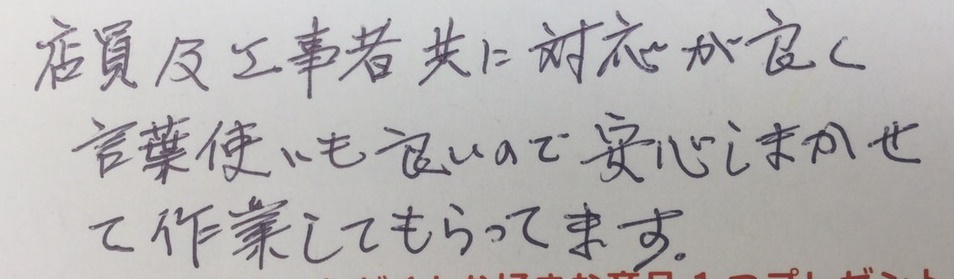 店員及工事者共に対応が良く
言葉使いも良いので安心しまかせ
て作業してもらってます。